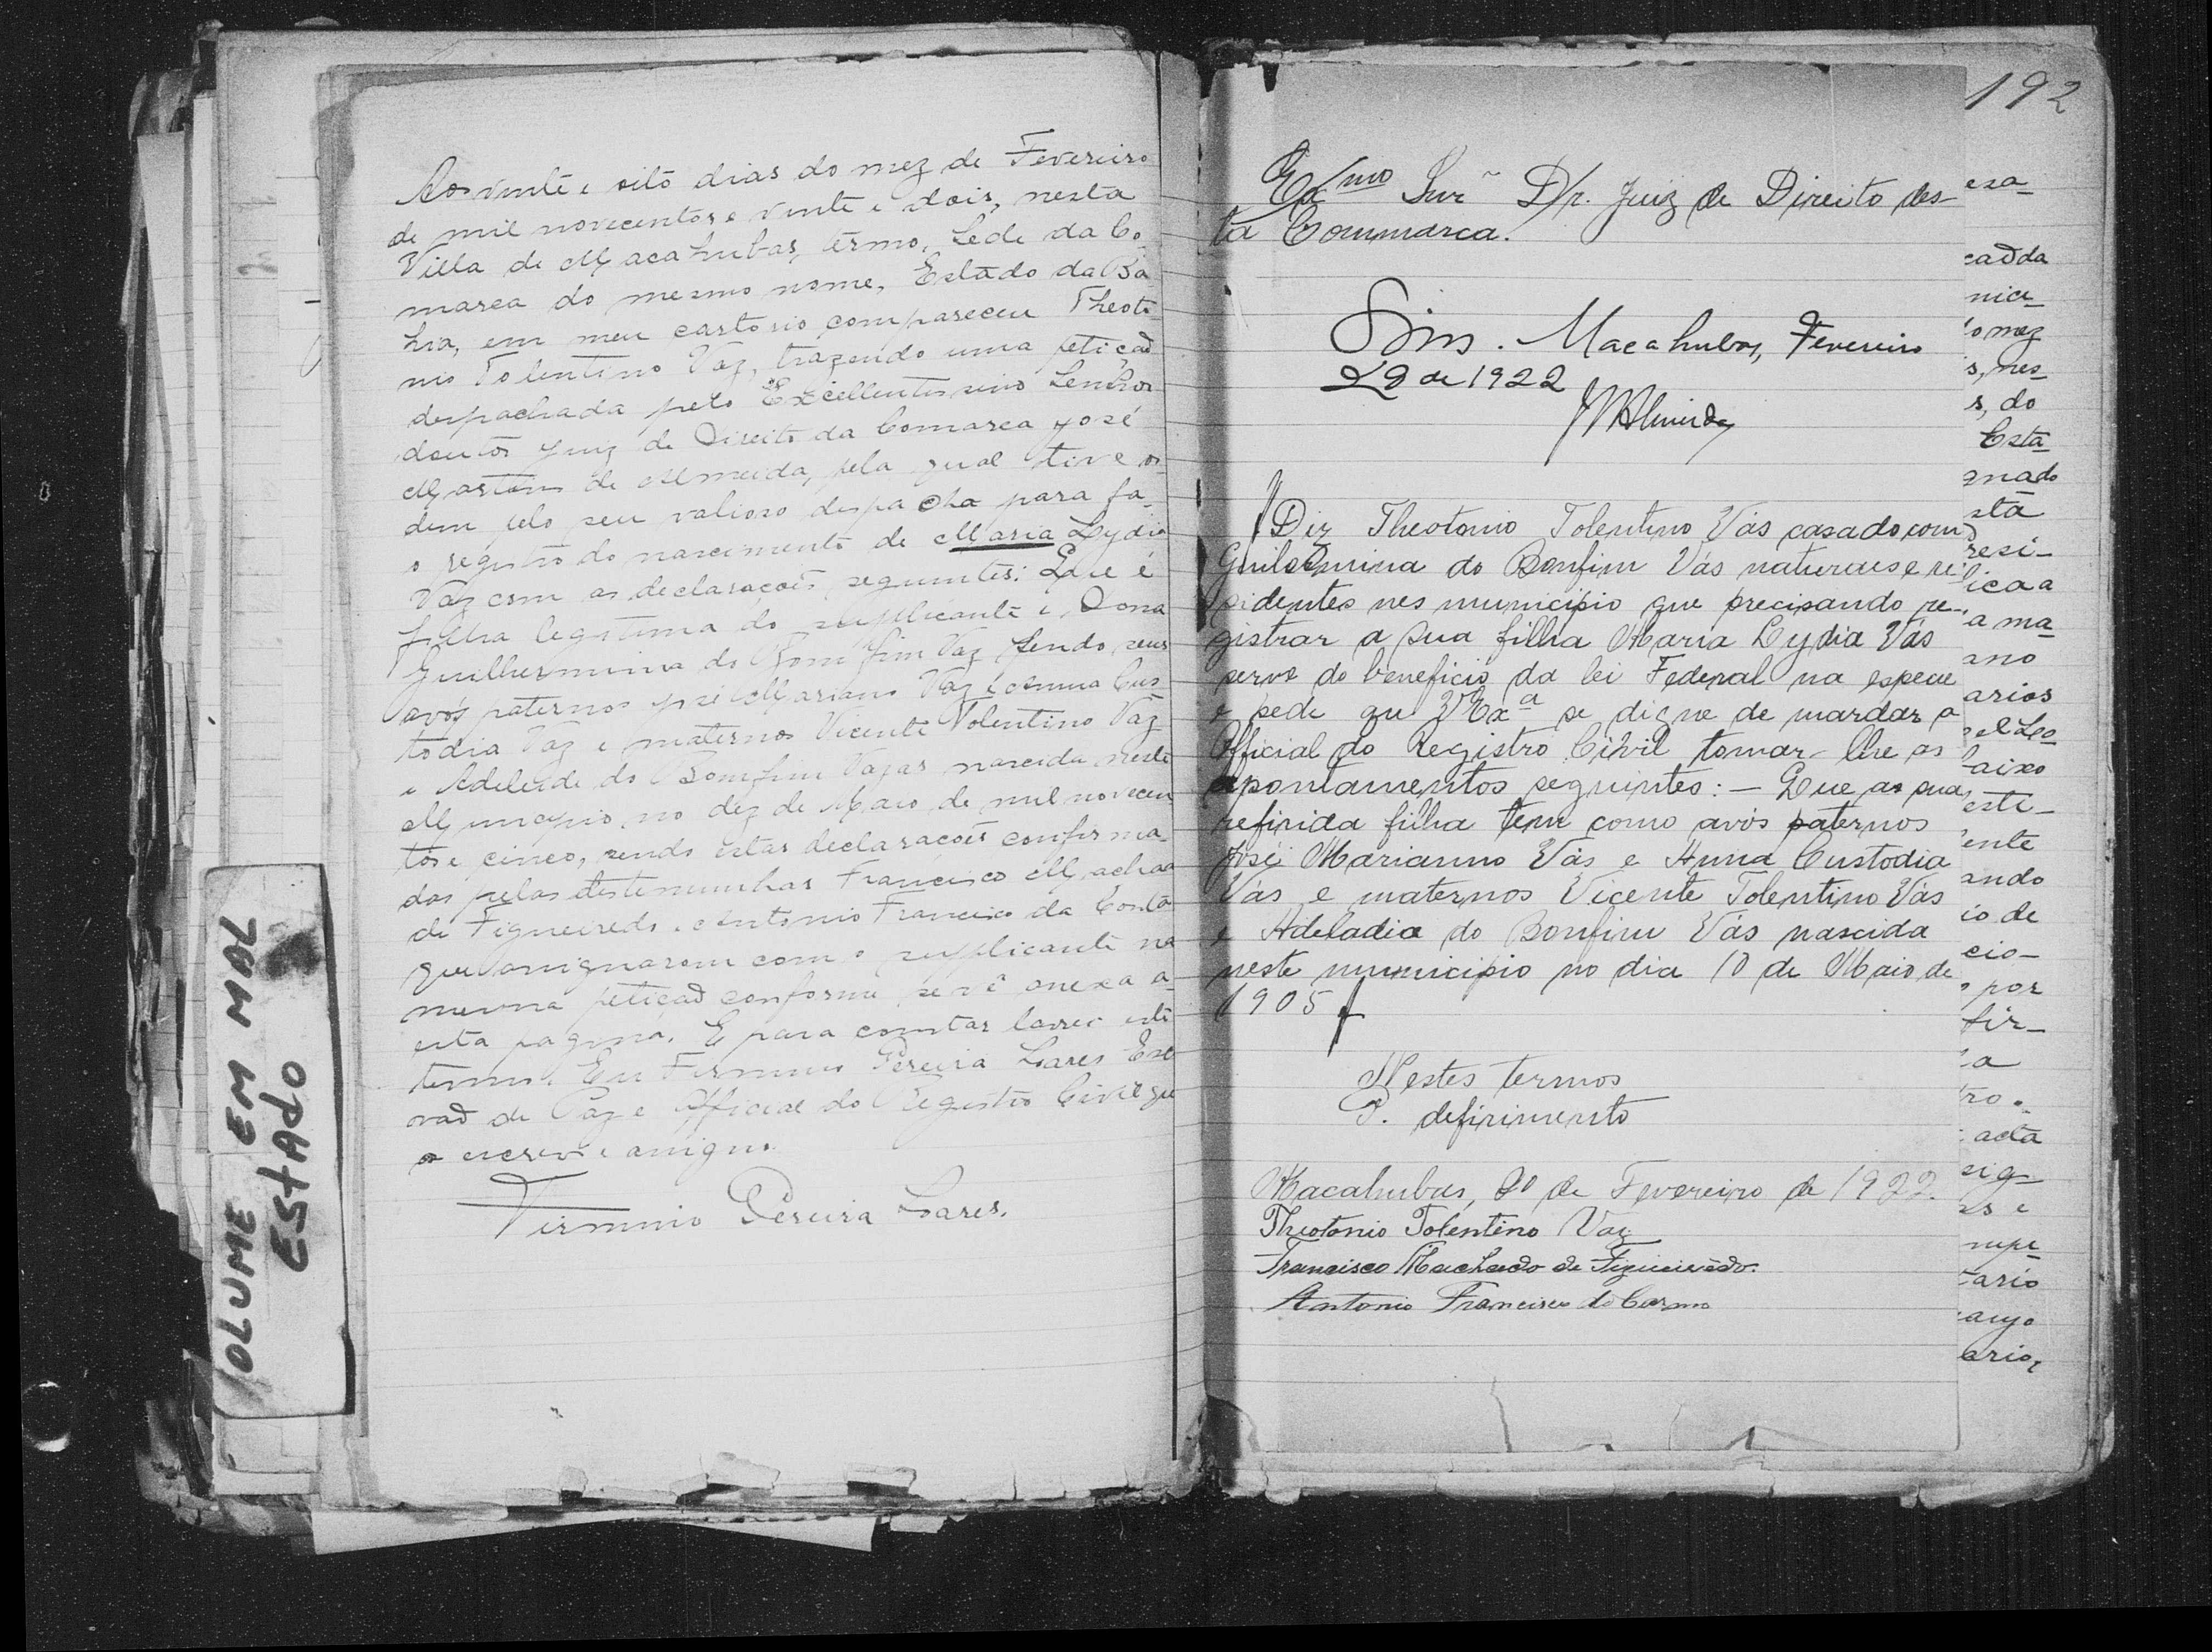 Aos vinte e oito dias do mez de Fevereiro
de mil novecentos e vinte e dois, nesta
Villa de Macahubas, termo, Sede da Co-
marca do mesmo nome, Estado da Ba-
hia, em meu cartorio compareceu Theoto-
nio Tolentino Vaz, trazendo uma peticaõ
despachada pelo Excellentissimo Senhor
doutor Juiz de Direito da Comarca José
Martins de Almeida, pela qual tive or-
dem pelo seu valioso despacho para fa-
o registro do nascimento de Maria Lydia
Vaz com as declaraçoẽs seguintes: Que é
filha legitima do supplicante e Dona
Guilhermina do Bomfim Vaz sendo seus
avós paternos José Mariano Vaz e Anna Cus-
todia Vaz e maternos Vicente Tolentino Vaz
e Adeleide do Bomfim Vazas nascida neste
Municipio, no dez de Maio de mil novecen
tos e cinco, sendo estas declaraçoẽs confirma-
das pelas testemunhas Francisco Machado
de Figueiredo e Antonio Francisco da Costa
que assignaram com o supplicante na
mesma peticaõ conforme se vê anexa a
esta pagina. E para constar lavrei este
termo. Eu Firmino Pereira Lares Escri-
vaõ de Paz e Official do Registro Civil que
o escrevi e assigno.
Firminio Pereira Lares.
VOLUME EM MAL
ESTADO
192
Exmo Snr Dr. Juiz de Direito des-
ta Commarca.
Sim. Macahubas, Fevereiro
28 de 1922
JMAlmeida
Diz Theotonio Tolentino Vás casado com
Guilermina do Bonfim Vás naturaes e re-
sidentes nes municipio que precisando re-
gistrar a sua filha Maria Lydia Vás
serve do beneficio da lei Federal na especie
e pede que VExa se digne de mandar o
Official do Registro Civil tomar-lhe as
apontamentos seguintes: — Que as sua
refirida filha tem como avós paternos
José Marianno Vás e Anna Custodia
Vás e maternos Vicente Tolentino Vás
e Adeladia do Bonfim Vás nascida
neste municipio no dia 10 de Maio de
1905
Nestes termos
P. defirimento
Macahubas, 20 de Fevereiro de 1922.
Theotonio Tolentino Vaz
Francisco Machado de Figueirêdo.
Antonio Francisco do Carmo
exa-
caõda
nici-
o mez
s, nes-
s, do
Esta
gnado
sta
resi-
lica a
a ma-
ano
arios
el Leo-
aixo
esti-
ente
ando
io de
cio-
por
fir-
a
ro.
acta
sig-
as e
nupe-
tario
aujo
ario,